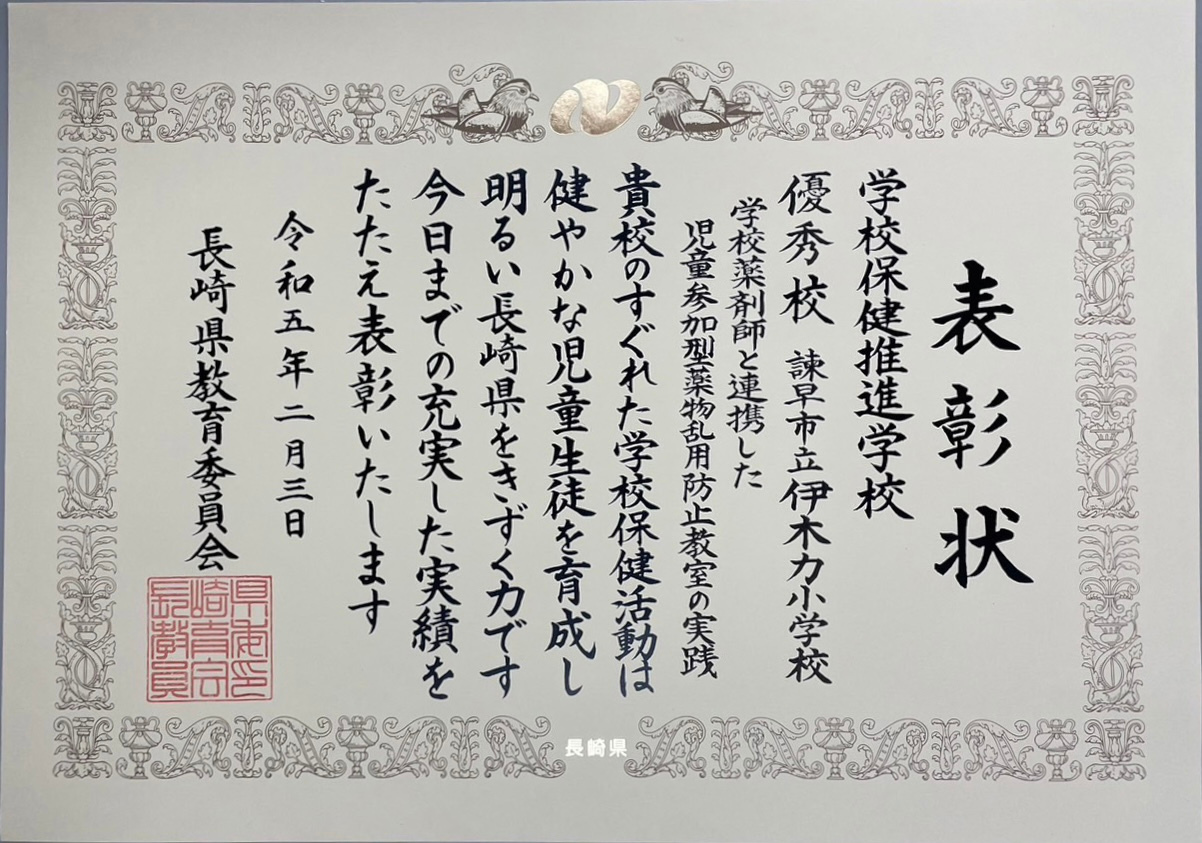 表彰状
学校保健推進学校
優秀校 諫早市立伊木力小学校
学校薬剤師と連携した
児童参加型薬物乱用防止教室の実践
貴校のすぐれた学校保健活動は
健やかな児童生徒を育成し
明るい長崎県をきずく力です
今日までの充実した実績を
たたえ表彰いたします
令和五年二月三日
長崎県教育委員会
県委印
崎育会
長教員
長崎県